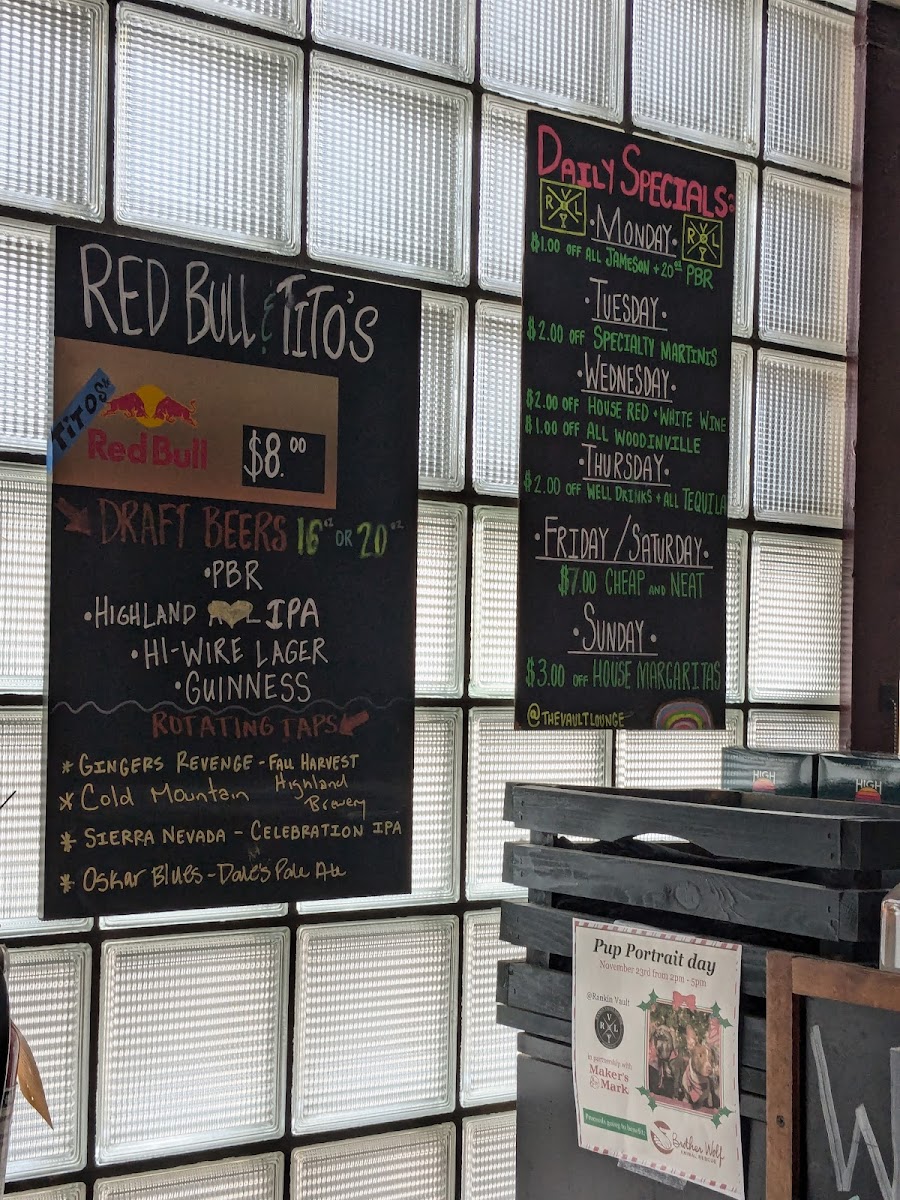 RED BULL & TITO'S
TITOS
Red Bull
$8.00
DRAFT BEERS 16oz OR 20oz
•PBR
•HIGHLAND AVL IPA
•HI-WIRE LAGER
•GUINNESS
ROTATING TAPS
* GINGERS REVENGE - FALL HARVEST
* Cold Mountain Highland
Brewery
* SIERRA NEVADA - CELEBRATION IPA
* Oskar Blues - Dale's Pale Ale
DAILY SPECIALS:
R V L T
•MONDAY•
R V L T
$1.00 OFF ALL JAMESON + 20oz PBR
•TUESDAY•
$2.00 OFF SPECIALTY MARTINIS
•WEDNESDAY•
$2.00 OFF HOUSE RED + WHITE WINE
$1.00 OFF ALL WOODINVILLE
•THURSDAY•
$2.00 OFF WELL DRINKS + ALL TEQUILA
•FRIDAY/SATURDAY•
$7.00 CHEAP AND NEAT
•SUNDAY•
$3.00 OFF HOUSE MARGARITAS
@THEVAULTLOUNGE
HIGH
HIGH
Pup Portrait day
November 23rd from 2pm - 5pm
@Rankin Vault
R V L T
in partnership with
Maker's
& Mark
Proceeds going to benefit
Brother Wolf
ANIMAL RESCUE
W